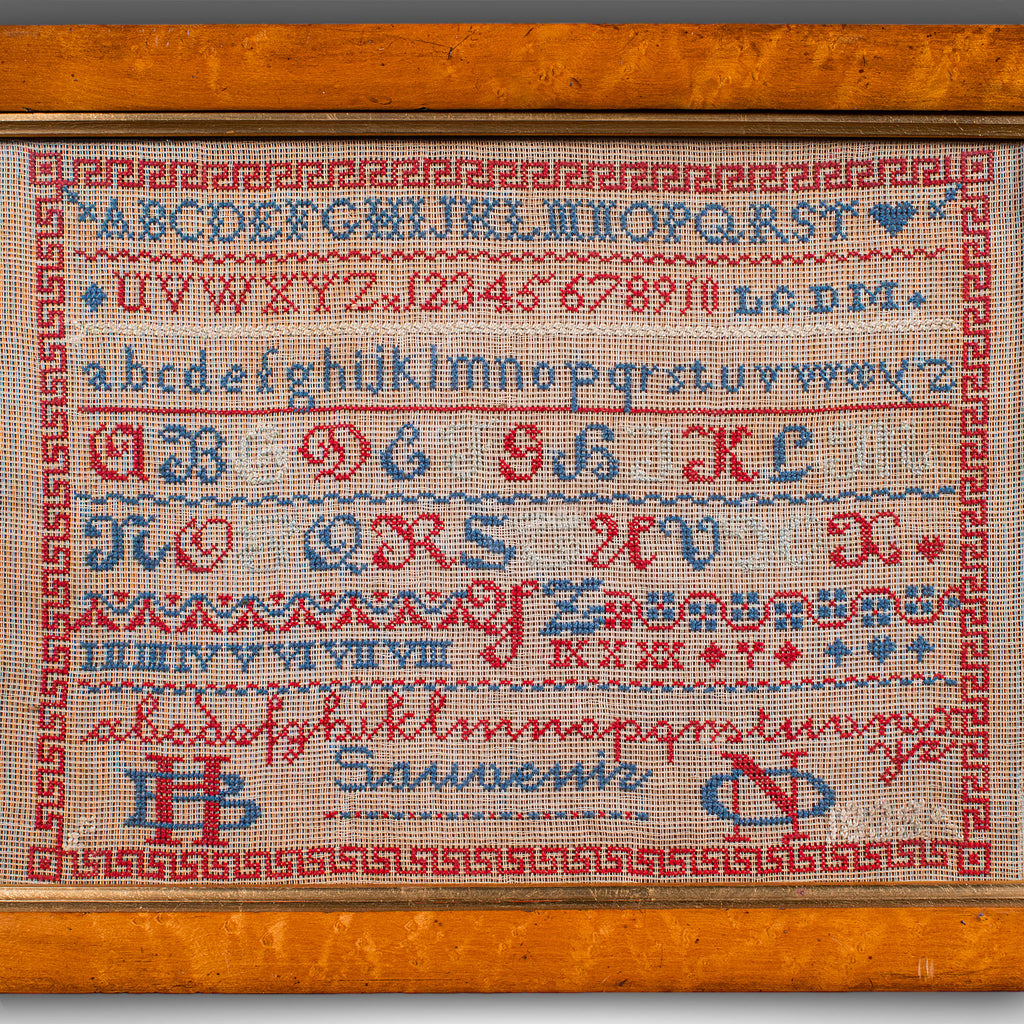 ABCDEFGHIJKLMNOPQRST
UVWXYZ 12345678910 LCDM
abcdefghijklmnopqrstuvwxyz
ABCDEFGHIJKLM
NOPQRSTUVWX
YZ
I II III IV V VI VII VIII IX X XX
abcdefghiklmnopqrstuvwxyz
Souvenir
HB ON